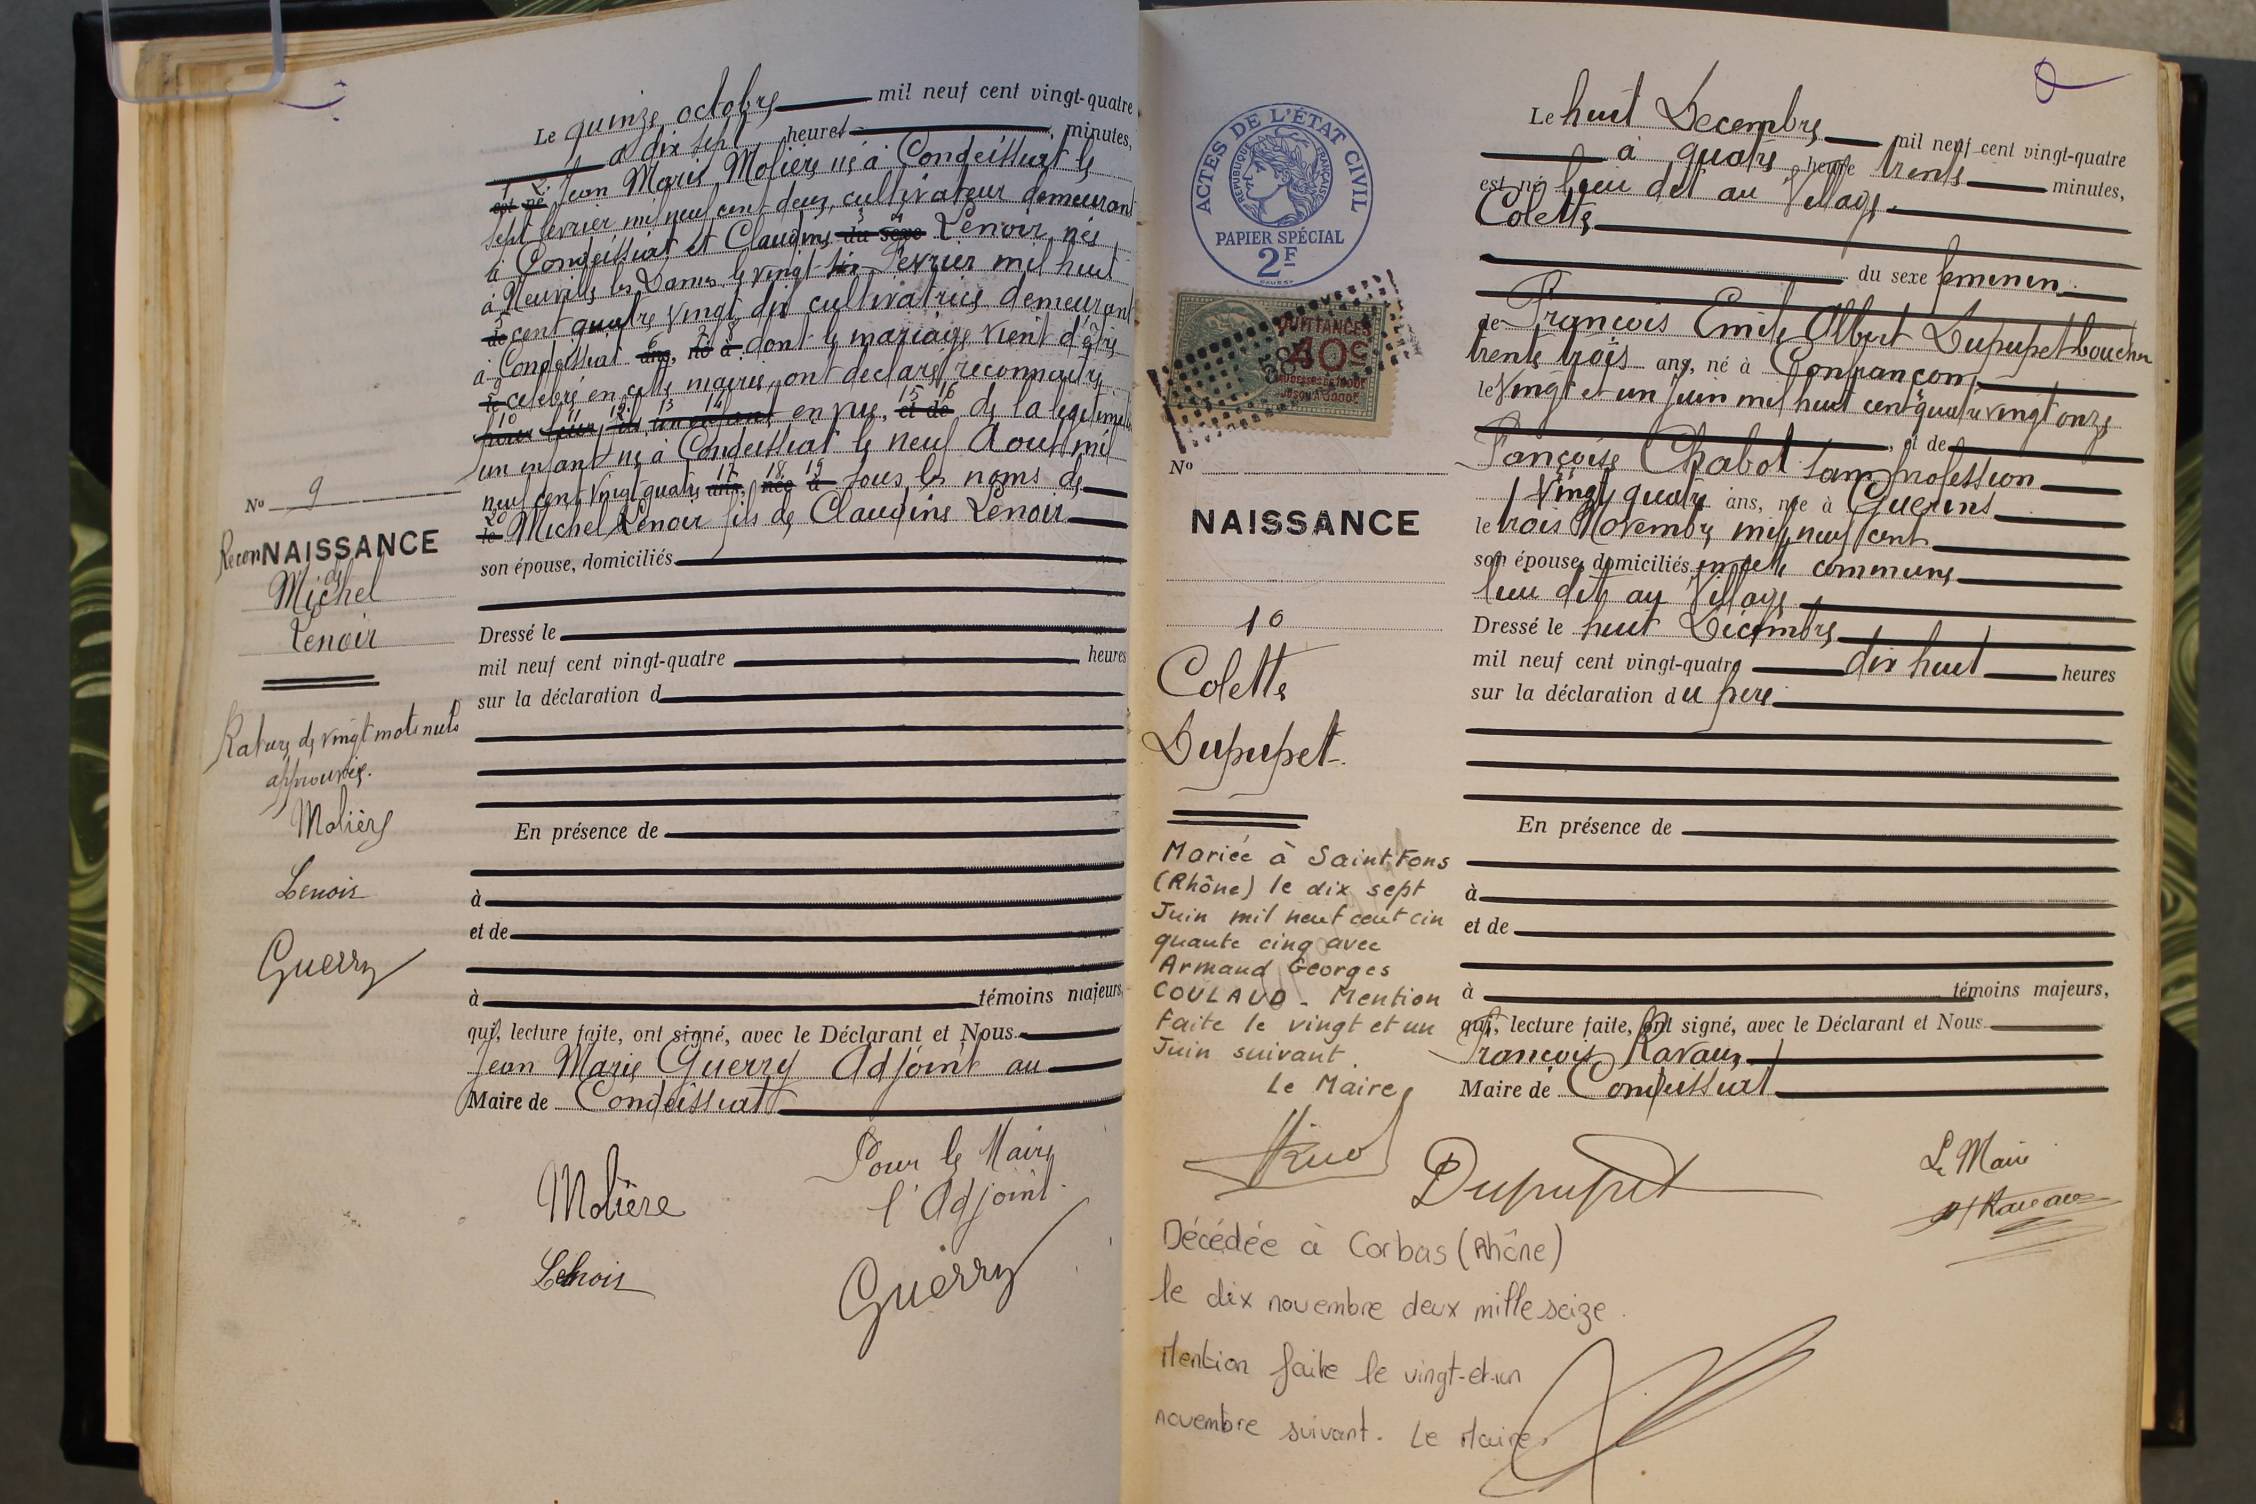 Le quinze octobre mil neuf cent vingt-quatre
à dix sept heures minutes,
est né Jean Marie Molière né à Condeissiat le
sept février mil neuf cent deux, cultivateur demeurant
à Condeissiat et Claudine du sexe Lenoir, née
à Neuville les Dames le vingt six Février mil huit
de cent quatre vingt dix cultivatrice demeurant
à Condeissiat ans, né à dont le mariage vient d'être
le célébré en cette mairie, ont déclaré reconnaitre
en vue, et de de la légitimer
un enfant né à Condeissiat le neuf Aout mil
neuf cent vingt quatre ans, née à sous les noms de
le Michel Lenoir fils de Claudine Lenoir
son épouse, domiciliés
Dressé le
mil neuf cent vingt-quatre heures
sur la déclaration d
En présence de
à
et de
à témoins majeurs,
qui, lecture faite, ont signé, avec le Déclarant et Nous
Jean Marie Guerry Adjoint au
Maire de Condeissiat
Molière
Pour le Maire
l'Adjoint
Lenoir
Guerry
No 9
ReconNAISSANCE
de
Michel
Lenoir
Rature de vingt mots nuls
approuvée.
Molière
Lenoir
Guerry
ACTES DE L'ÉTAT CIVIL
RÉPUBLIQUE FRANÇAISE
PAPIER SPÉCIAL
2F
QUITTANCES
40c
No
NAISSANCE
10
Colette
Dupupet
Mariée à Saint-Fons
(Rhône) le dix sept
Juin mil neuf cent cin
quante cinq avec
Armand Georges
COULAUD - Mention
Faite le vingt et un
Juin suivant.
Le Maire,
Le huit Decembre mil neuf cent vingt-quatre
à quatre heure trente minutes,
est né lieu dit au Village
Colette
du sexe feminin
de François Emile Albert Dupupet boucher
trente trois ans, né à Confrançon
le vingt et un juin mil huit cent quatre vingt onze
, et de
Françoise Chabot sans profession
vingt quatre ans, née à Guerins
le trois Novembre mil neuf cent
son épouse, domiciliés en cette commune
lieu dit au Village
Dressé le huit Décembre
mil neuf cent vingt-quatre dix huit heures
sur la déclaration du père
En présence de
à
et de
à témoins majeurs,
qui, lecture faite, ont signé, avec le Déclarant et Nous
François Ravaux
Maire de Condeissiat
Dupupet
Le Maire
Ravaux
Décédée à Corbas (Rhône)
le dix novembre deux mille seize.
Mention faite le vingt-et-un
novembre suivant. Le Maire,